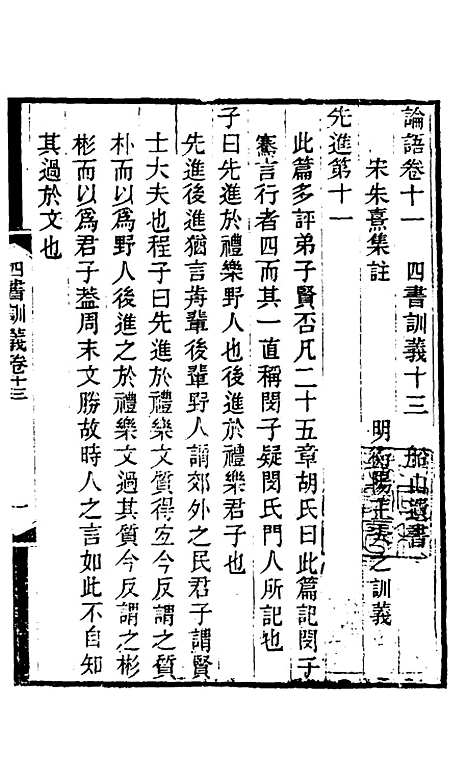 論語卷十一　四書訓義十三　船山遺書
宋朱熹集註　明衡陽王夫之訓義
先進第十一
此篇多評弟子賢否凡二十五章胡氏曰此篇記閔子
騫言行者四而其一直稱閔子疑閔氏門人所記也
子曰先進於禮樂野人也後進於禮樂君子也
先進後進猶言歬輩後輩野人謂郊外之民君子謂賢
士大夫也程子曰先進於禮樂文質得宐今反謂之質
朴而以爲野人後進之於禮樂文過其質今反謂之彬
彬而以爲君子葢周末文勝故時人之言如此不自知
其過於文也
四書訓義卷十三　一